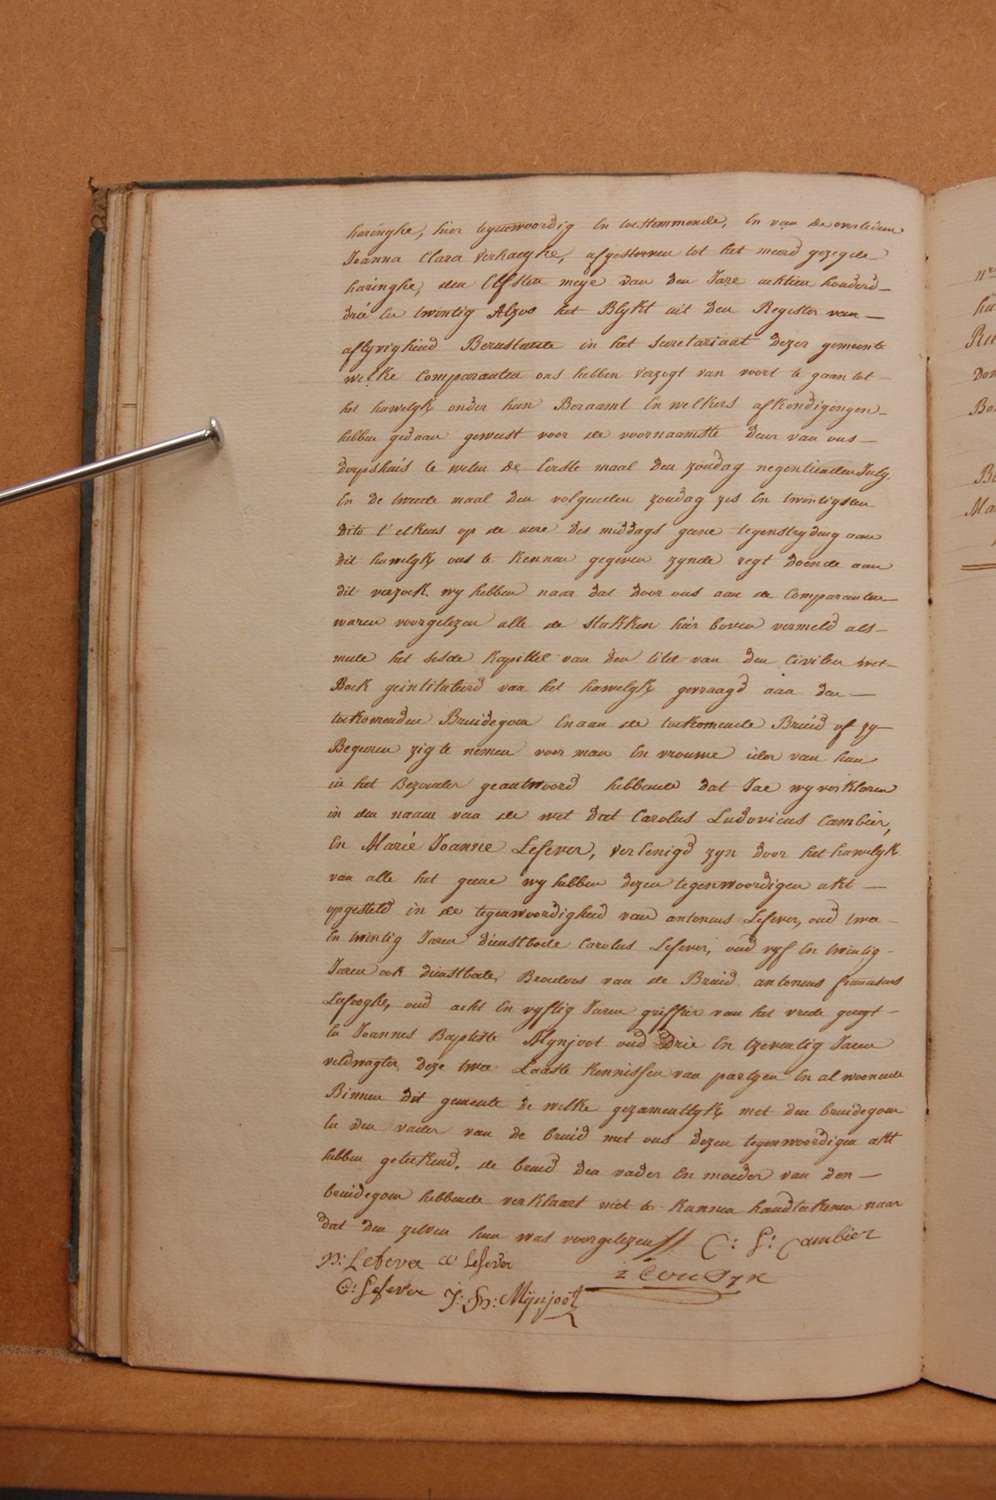 haringhe, hier tegenwoordig En toestemmende, En van de overledene
Joanna Clara Verhaeghe, afgestorven tot het meerd gezegde
haringhe, den Elfsten meye van den Jare achtien honderd
drié En twintig Alzoo het Blykt uit den Register van
aflyvigheid Berustende in het Secretariaat dezer gemeente
welke Comparanten ons hebben verzogt van voort te gaan tot
het huwelyk onder hun Beraamt En welkers afkondigengen
hebben gedaan geweest voor de voornaamste deur van ons
dorpshuis te weten de Eerste maal den zondag negentienden July
En de tweede maal den volgenden zondag zes En twintigsten
dito t'elkens op de uere des middags geene tegenstryding aan
dit huwelyk ons te kennen gegeven zynde regt doénde aan
dit verzoek wy hebben naar dat door ons aan de Comparanten
waren voorgelezen alle de stukken hier boven vermeld als
mede het sesde kapittel van den titel van den Civilen wet
Boek geintituleerd van het huwelyk gevraagd aan den
toekomenden Bruidegom En aan de toekomende Bruid of zy
Begeren zig te nemen voor man En vrouwe ider van hun
in het Bezonder geantwoord hebbende dat Jae wy verklaren
in den naam van de wet dat Carolus Ludovicus Cambier,
En Marié Joanne Lefever, Verlenigd zyn door het huwelyk
van alle het geene wy hebben dezen tegenwoordigen akt
opgesteld in de tegenwoordigheid van antonius Lefever, oud twee
En twintig Jaren dienstbode Carolus Lefever, oud vyf En twintig
Jaren ook dienstbode, Broeders van de Bruid antonius franciscus
oud acht En vyftig Jaren griffier van het vrede geregt
En Joannes Baptiste Mynjoot oud Drie En tzeventig Jaren
veldwagter, deze twee Laaste kennissen van partyen En al woonende
Binnen dit gemeente de welke gezamentlyk met den bruidegom
En den vader van de bruid met ons dezen tegenwoordigen akt
hebben geteekend, de bruid den vader En moeder van den
bruidegom hebbende verklaart niet te kunnen handteekenen naar
dat den zelven hun was voorgelezen // C: L: Cambier
Lefever Lefever
C: Lefever J: B: Mijnjoot